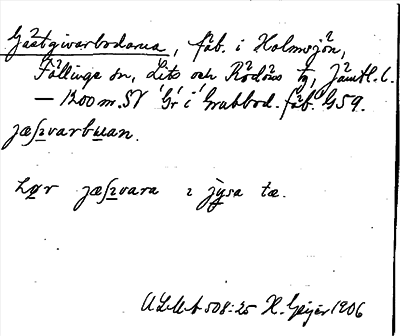 Gästgivarbodarna, fäb. i Holmsjön,
Föllinge sn, Lits och Rödöns tg, Jämtl. l.
— 1200 m. SV Gr i Grubbod. fäb. G59.
jæʃɪvarbuan.
Lør jæʃɪvara ɪ jysa tæ.
ULMA 508:25 H. Geijer 1906